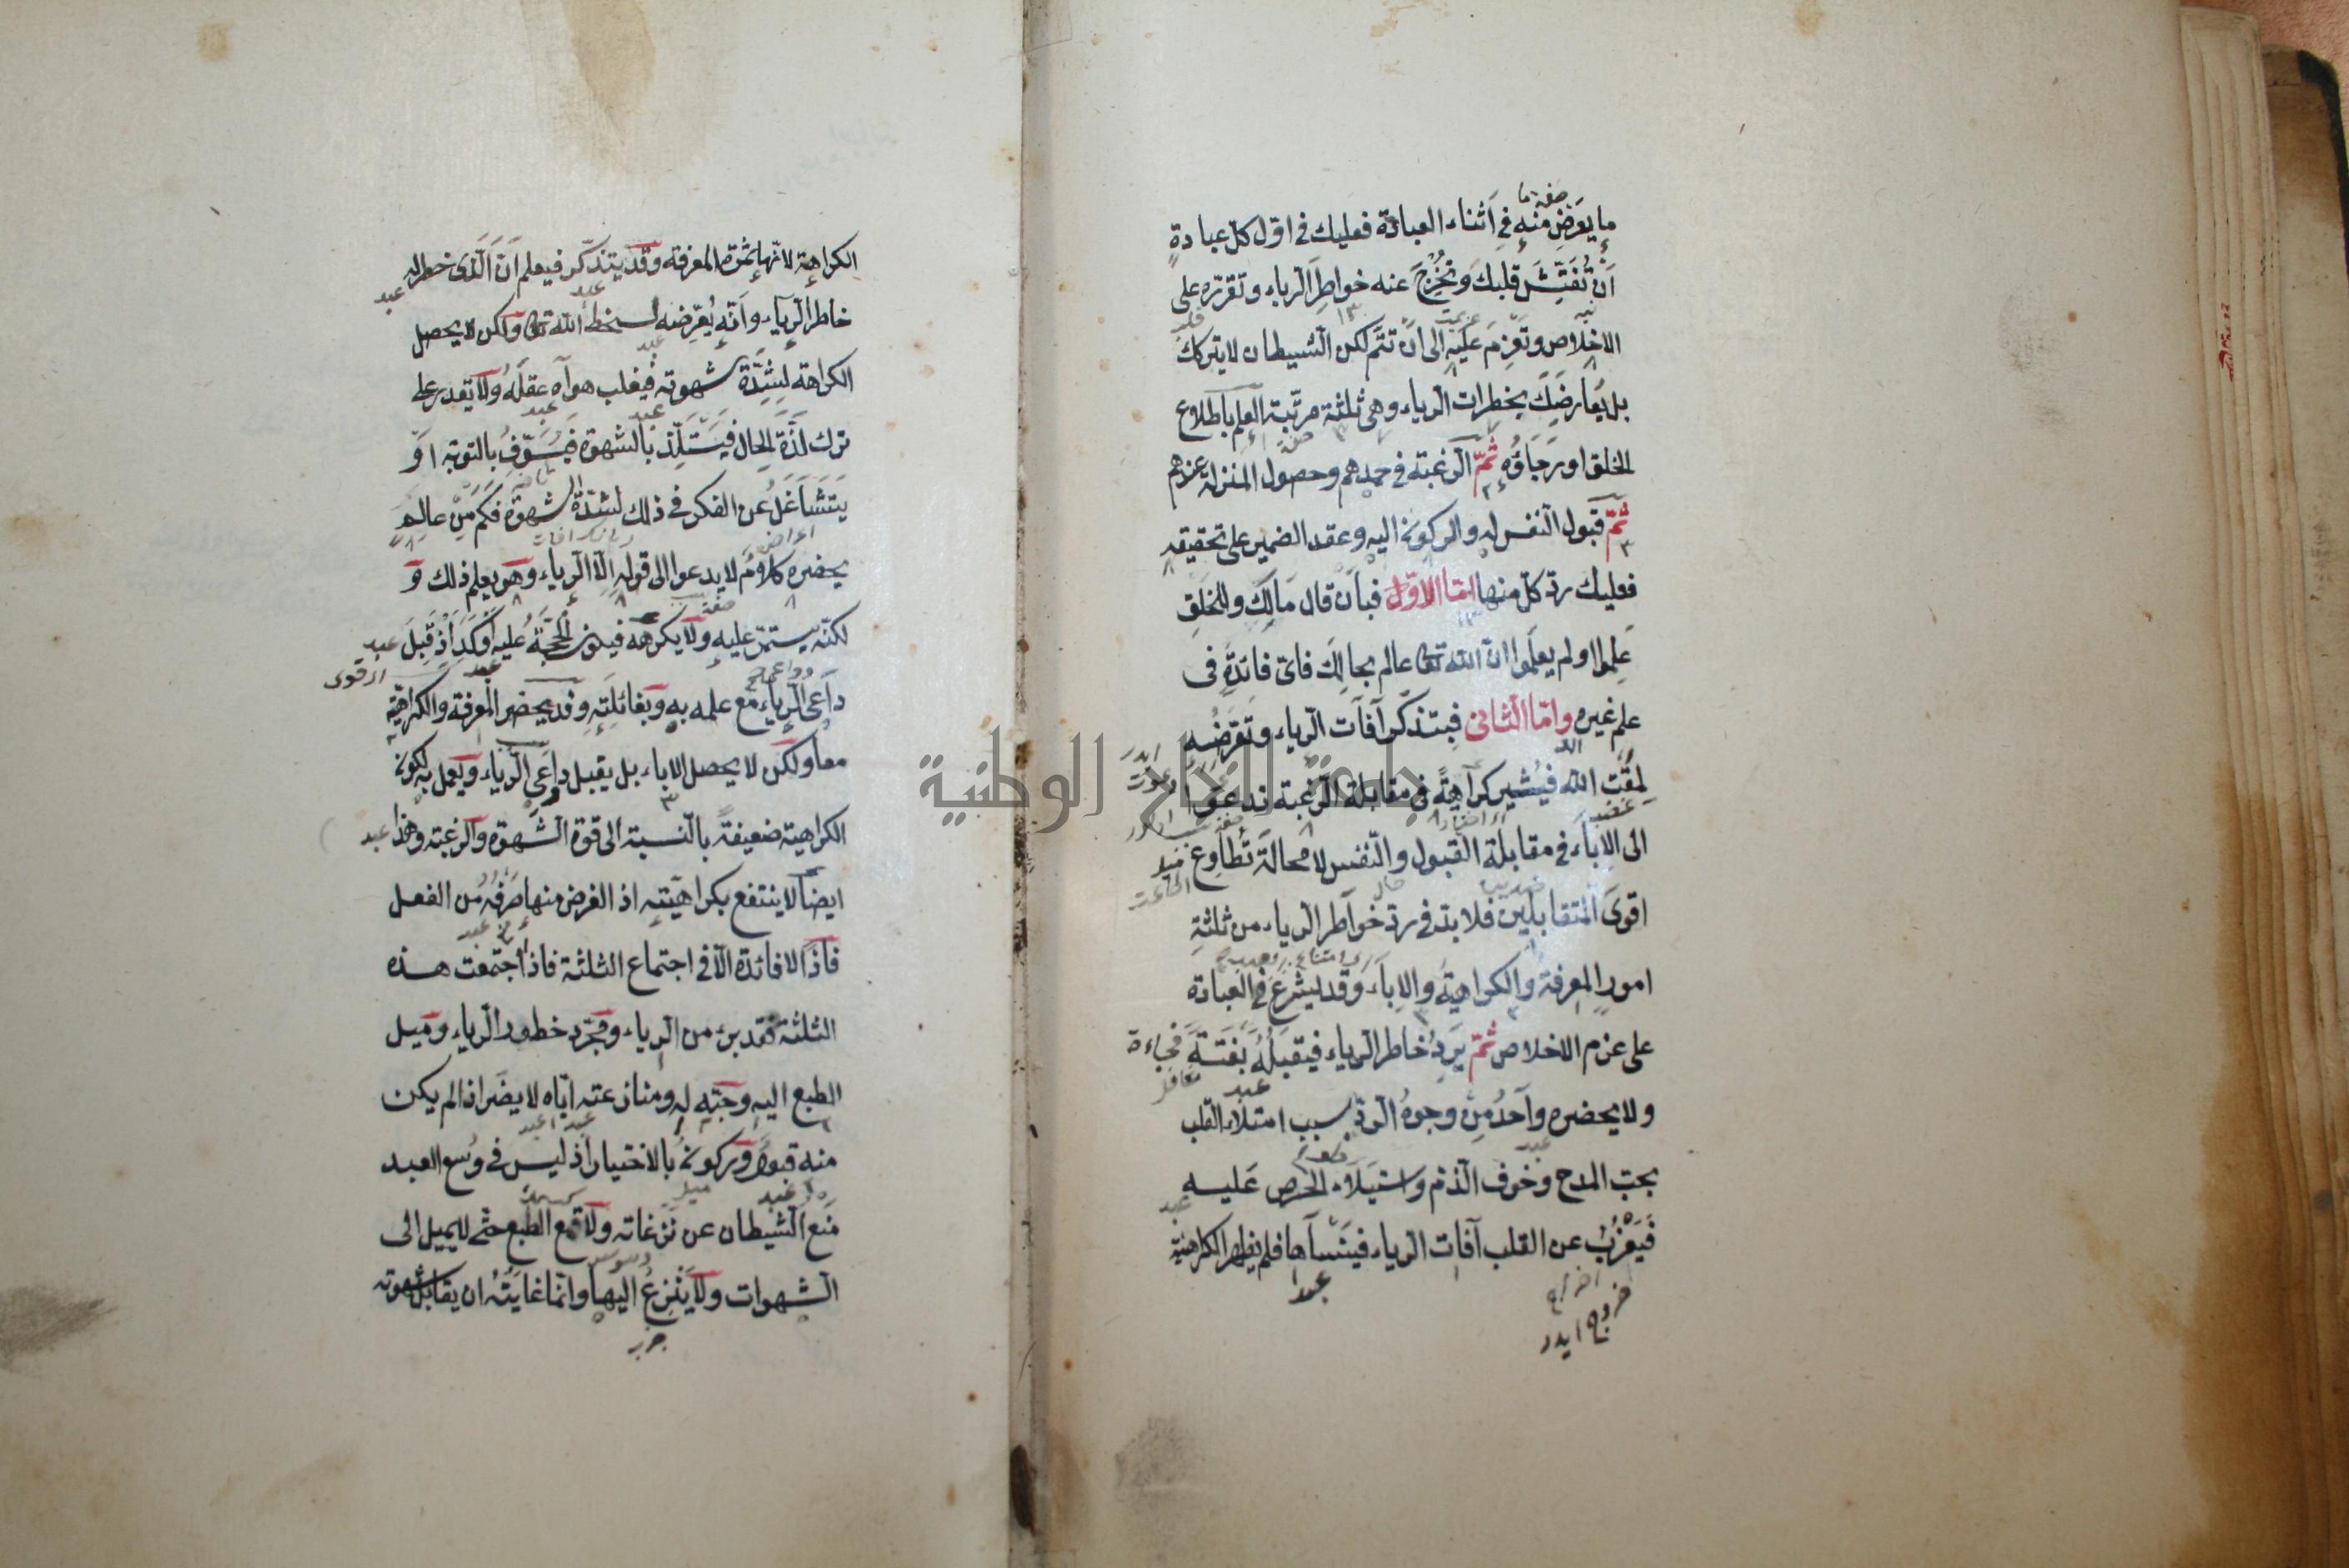 ما يعرض منه في أثناء العبادة فعليك في اول كل عبادة
أن تُفَتِّشَ قلبك وتُخْرِجَ عنه خواطر الرياء وتقرّره على
الاخلاص وتَعْزِمَ عليه الى ان تتم لكن الشيطان لا يتركك
بل يُعارضك بخطرات الرياء وهي ثلثة مرتبة العلم باطلاع
الخلق او رَجَاؤُه ثمّ الرغبة في حمدهم وحصول المنزلة عندهم
ثمّ قبول النفس له والركون اليه وعقد الضمير على تحقيقه
فعليك ردّ كل منها امّا الاوّل فبأن قال مالك وللخلق
علموا او لم يعلموا انّ الله تعالى عالم بحالك فاىّ فائدة في
علم غيره وامّا الثاني فبتذكّر آفات الرياء وتعرّضه
لمقت الله فيُثير كراهةً في مقابلة الرغبة تدعوا
الى الإباء في مقابلة القبول والنفس لا محالة تُطاوِع
اقوى المتقابلين فلا بدّ في ردّ خواطر الرياء من ثلثة
امور المعرفة والكراهية والإباء وقد يشرع في العبادة
على عزم الاخلاص ثمّ يَرِدُ خاطر الرياء فيقبَلُهُ بَغْتَةً فجاءة
ولا يحضره واحدٌ من وجوه الردّ بسبب امتلاء القلب
بحبّ المدح وخوف الذمّ واستيلاء الحرص عليه
فَيَعْزُبُ عن القلب آفات الرياء فينساها فلم يظهر الكراهية
خروج ايدر
الكراهة لانّها ثمرة المعرفة وقد يتذكّر فيعلم أنّ الّذى خطر له
خاطر الرياء وأنّه يُعَرِّضه لسخط الله تعالى ولكن لا يحصل
الكراهة لشِدّة شهوته فيغلب هواه عقلَهُ ولا يقدر على
ترك لذّة الحال فيستلذّ بالشهوة فيُسَوِّفُ بالتوبة اوْ
يَتَشَاغَلُ عن الفكر في ذلك لشدّة الشهوة فكم من عالِمٍ
يحضره كلام لا يدعوا الى قوله الّا الرياء وهو يعلم ذلك و
لكنّه يستمرّ عليه ولا يكرهه فيكون الحجّةُ عليه أوكد اذ قَبِلَ
داعى الرياء مع علمه به وبغائلته وقد يحضر المعرفة والكراهية
معا ولكن لا يحصل الاباء بل يقبل داعى الرياء ويعمل به لكون
الكراهية ضعيفة بالنسبة الى قوة الشهوة والرغبة وهذا
ايضا لا ينتفع بكراهيّته اذ الغرض منها صَرْفُهُ من الفعل
فاذًا لا فائدة الّا في اجتماع الثلثة فاذا اجتمعت هذه
الثلثة فقد برء من الرياء ومجرّد خطور الرياء وميل
الطبع اليه وحبّه له ومنازعته ايّاه لا يضرّ اذا لم يكن
منه قبول وركون بالاختيار اذ ليس في وُسع العبد
منع الشيطان عن نزغاته ولا قمع الطبع حتّى لا يميل الى
الشهوات ولا ينزعُ اليها وانّما غايتُهُ ان يقابل شهوته
جامعة النجاح الوطنية